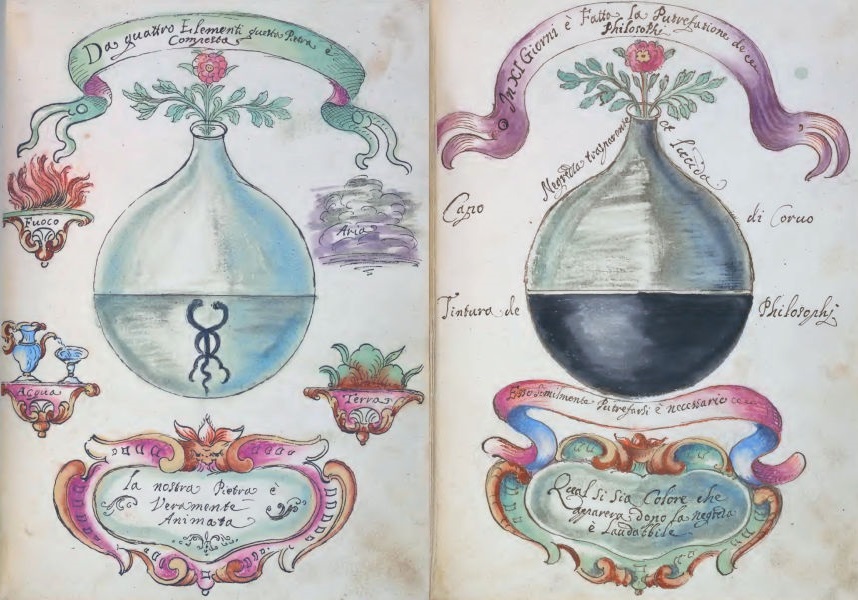 Da quattro Elementi questa Pietra è
Composta
Fuoco
Aria
Acqua
Terra
la nostra Pietra è
Veramente
Animata
In XI Giorni è Fatta la Putrefatione de
Philosophi
Negrezza trasparente et lucida
Capo di Coruo
Tintura de Philosophj
Esso similmente Putrefarsi è necessario
Qual si sia Colore che
apparera dopo la negreza
è Laudabile